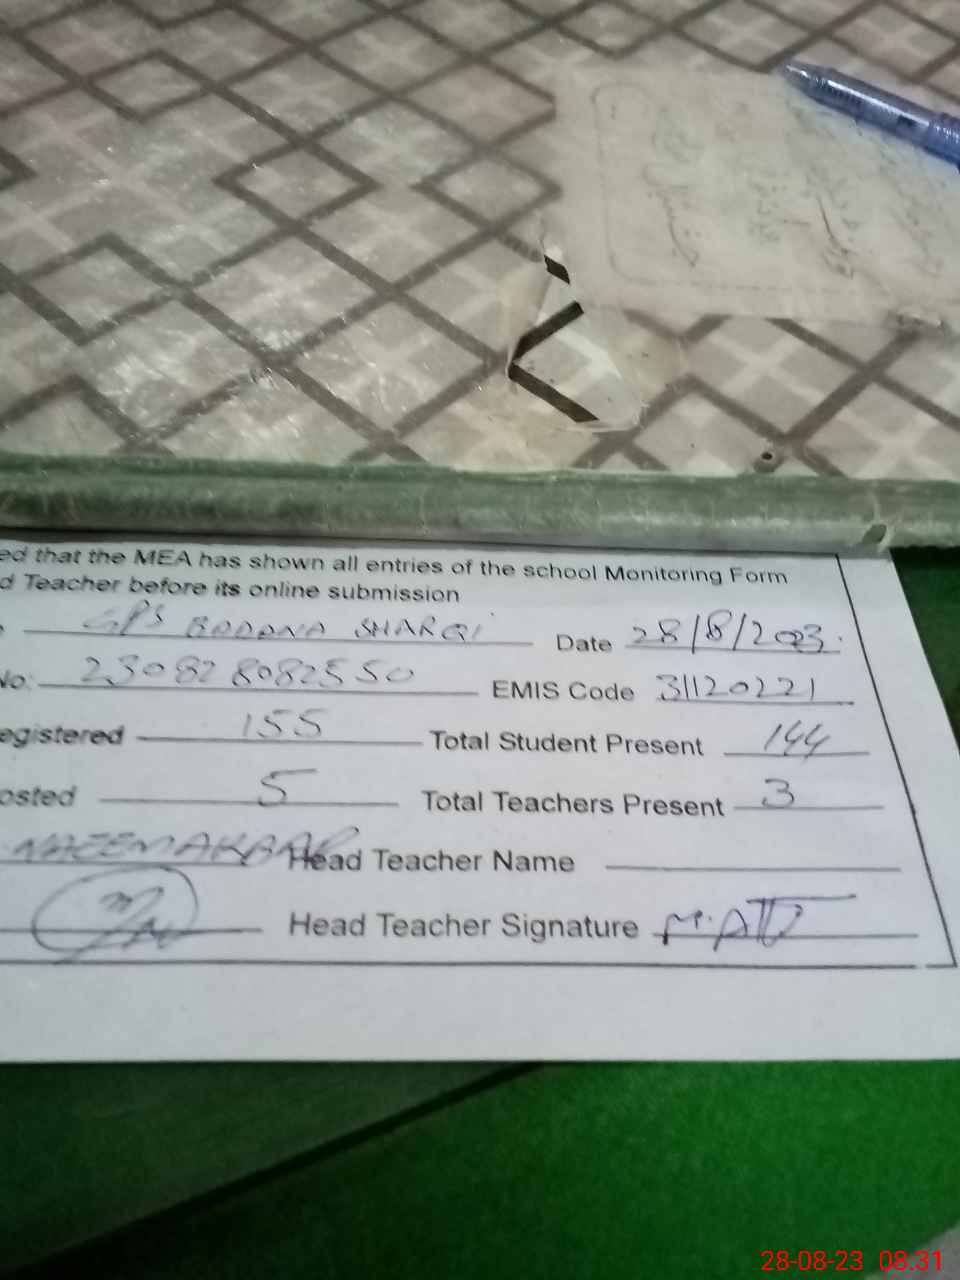 ed that the MEA has shown all entries of the school Monitoring Form
d Teacher before its online submission
GPS BODANA SHARQI Date 28/8/2023.
No: 230828082550 EMIS Code 31120221
egistered 155 Total Student Present 144
osted 5 Total Teachers Present 3
NAEEM AKBAR Head Teacher Name
Head Teacher Signature
28-08-23 08:31